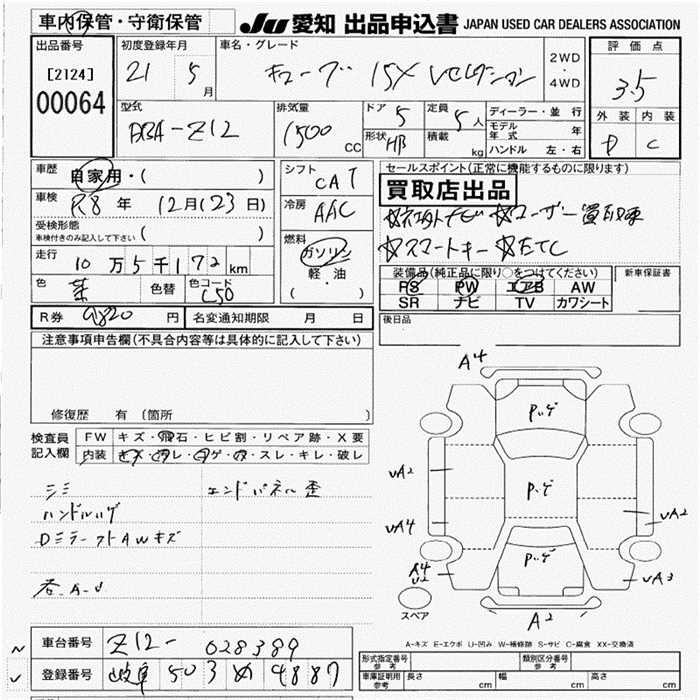 車内保管・守衛保管
JU 愛知 出品申込書 JAPAN USED CAR DEALERS ASSOCIATION
出品番号
[2124]
00064
初度登録年月
21 5月
車名・グレード
キューブ 15X Vセレクション
2WD・4WD
評価点
3.5
外装 内装
D C
型式
DBA-Z12
排気量
1500 CC
ドア 5
形状 HB
定員 5人
積載 kg
ディーラー・並行
モデル年式 年
ハンドル 左・右
車歴 自家用・( )
車検 R8年 12月(23日)
受検形態
車検付きのみ記入して下さい ( )
走行 10万5千172km
色 茶 色替 色コード C50
シフト CAT
冷房 AAC
燃料
ガソリン
軽・油
( )
セールスポイント(正常に機能するものに限ります)
買取店出品
☆ナビ ☆ユーザー買取車
☆スマートキー ☆ETC
装備品(純正品に限り○をつけてください)
PS PW エアB AW
SR ナビ TV カワシート
新車保証書
後日品
R券 9820円 名変通知期限 月 日
注意事項申告欄(不具合内容等は具体的に記入して下さい)
修復歴 有 (箇所 )
検査員記入欄
FW キズ・飛石・ヒビ割・リペア跡・X要
内装 キズ・ヨゴレ・コゲ・穴・スレ・キレ・破レ
シミ エンドパネル歪
ハンドルハゲ
Dミラー ストAWキズ
各.A-U
A4
P.ゲ
P.ゲ
P.ゲ
UA2
UA4
UA2
A4
U2
UA3
A2
スペア
A-キズ E-エクボ U-凹み W-補修跡 S-サビ C-腐食 XX-交換済
車台番号 Z12-028389
登録番号 岐阜 503 め 4887
形式指定番号 参考
類別区分番号 参考
車庫証明用 参考 長さ cm 幅 cm 高さ cm